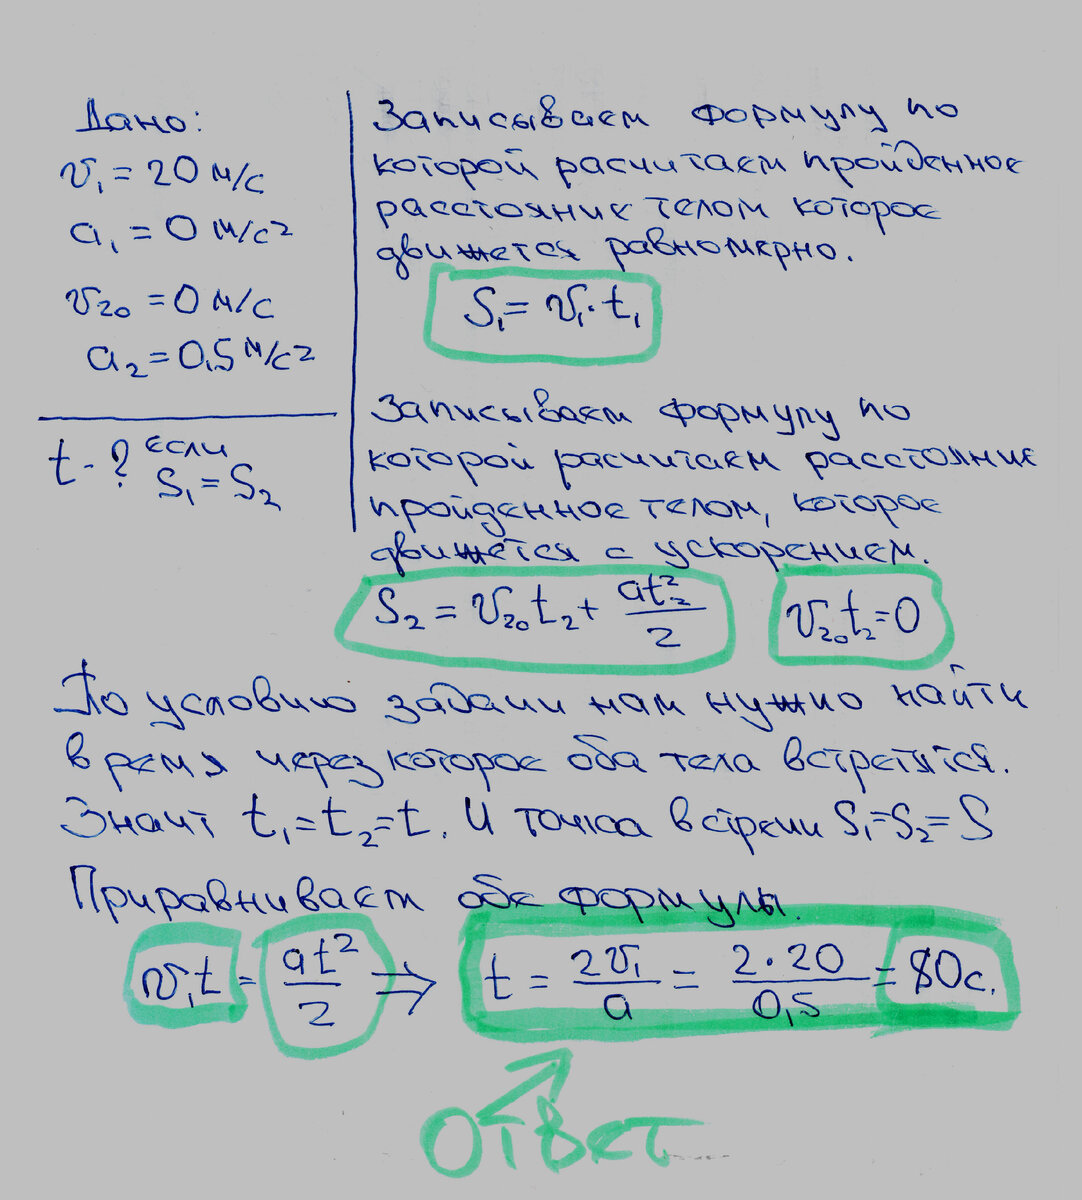 Дано:
v₁ = 20 м/с
a₁ = 0 м/с²
v₂₀ = 0 м/с
a₂ = 0,5 м/с²
t - ? если
S₁ = S₂
Записываем формулу по
которой расчитаем пройденное
расстояние телом которое
движется равномерно.
S₁ = v₁ · t₁
Записываем формулу по
которой расчитаем расстояние
пройденное телом, которое
движется с ускорением.
S₂ = v₂₀t₂ + at₂²/2   v₂₀t₂ = 0
По условию задачи нам нужно найти
время через которое оба тела встретятся.
Значит t₁ = t₂ = t. И точка встречи S₁ = S₂ = S
Приравниваем обе формулы.
v₁t = at²/2 ⇒ t = 2v₁/a = 2·20/0,5 = 80с.
ответ